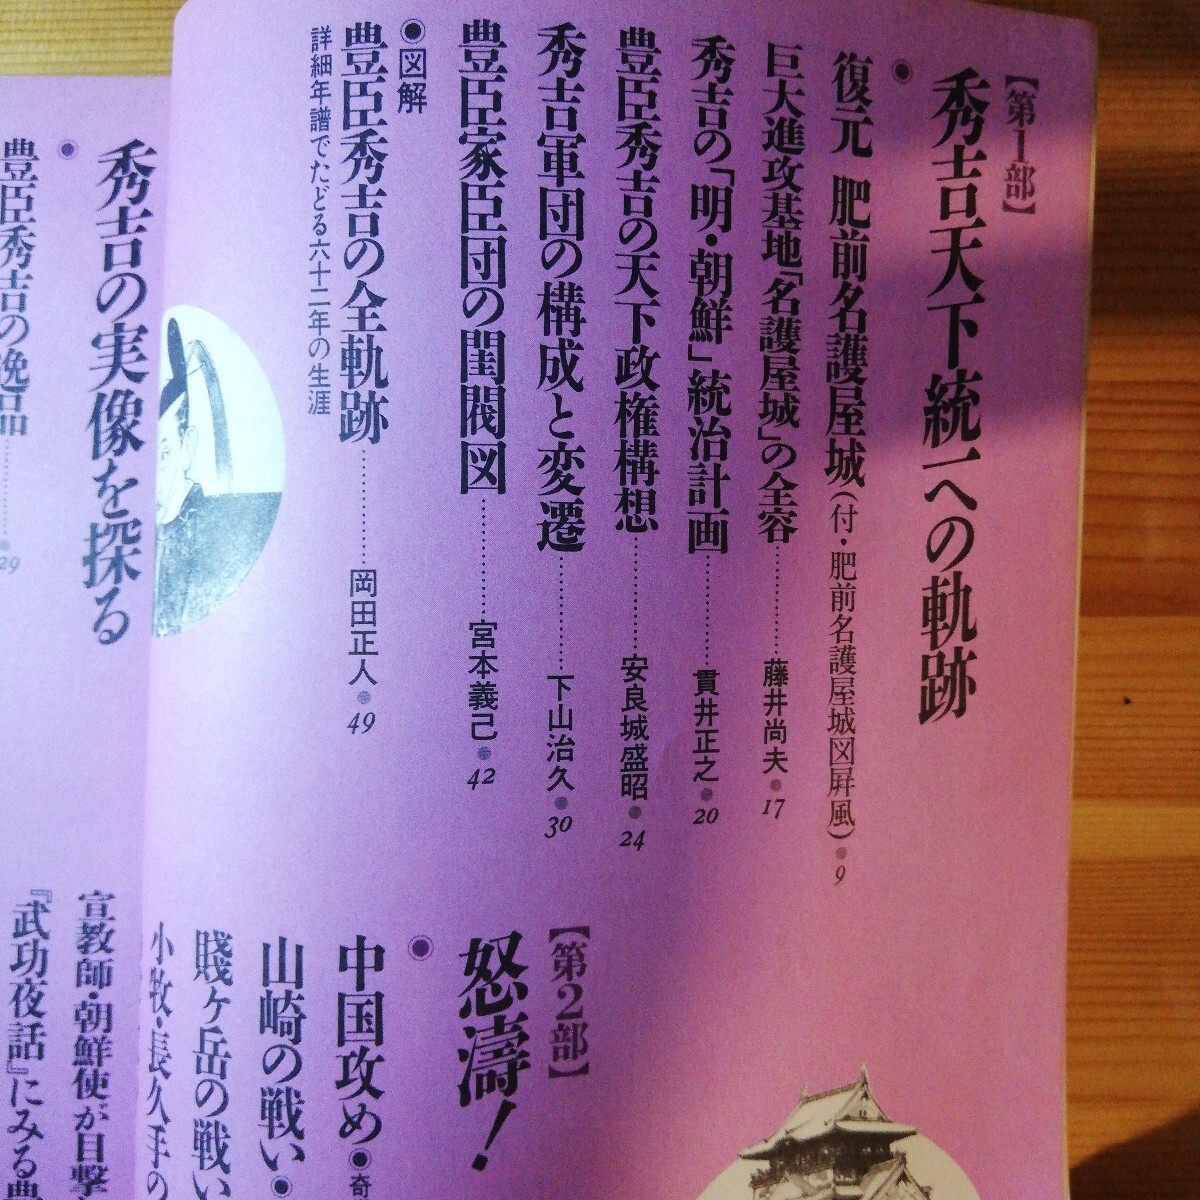 【第1部】
秀吉天下統一への軌跡
◉
復元 肥前名護屋城(付・肥前名護屋城図屛風)●9
巨大進攻基地「名護屋城」の全容…………藤井尚夫●17
秀吉の「明・朝鮮」統治計画…………貫井正之●20
豊臣秀吉の天下政権構想…………安良城盛昭●24
秀吉軍団の構成と変遷…………下山治久●30
豊臣家臣団の閨閥図…………宮本義己●42
◉図解
豊臣秀吉の全軌跡…………岡田正人●49
詳細年譜でたどる六十二年の生涯
【第2部】
怒濤!
◉
中国攻め●奇
山崎の戦い●
賤ヶ岳の戦い
小牧・長久手の
秀吉の実像を探る
◉
豊臣秀吉の逸品…………●29
宣教師・朝鮮使が目撃
『武功夜話』にみる豊